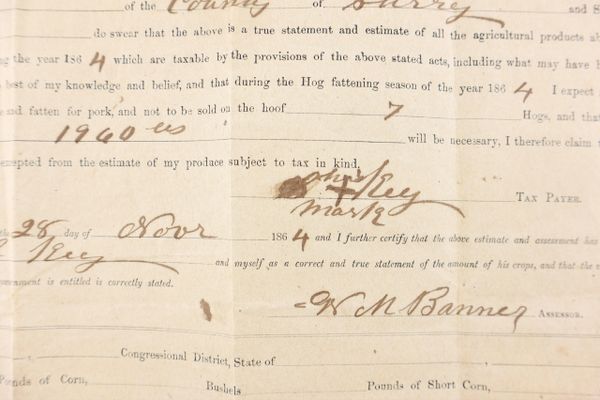 of the County of Surry and S
do swear that the above is a true statement and estimate of all the agricultural products ab
g the year 1864 which are taxable by the provisions of the above stated acts, including what may have b
best of my knowledge and belief, and that during the Hog fattening season of the year 1864 I expect
and fatten for pork, and not to be sold on the hoof 7 Hogs, and that
1960 lbs will be necessary, I therefore claim t
exempted from the estimate of my produce subject to tax in kind.
his Key
mark TAX PAYER.
the 28 day of Novr 1864 and I further certify that the above estimate and assessment has
Key and myself as a correct and true statement of the amount of his crops, and that the
vernment is entitled is correctly stated.
W M Banner ASSESSOR.
Congressional District, State of
Pounds of Corn, Bushels Pounds of Short Corn,